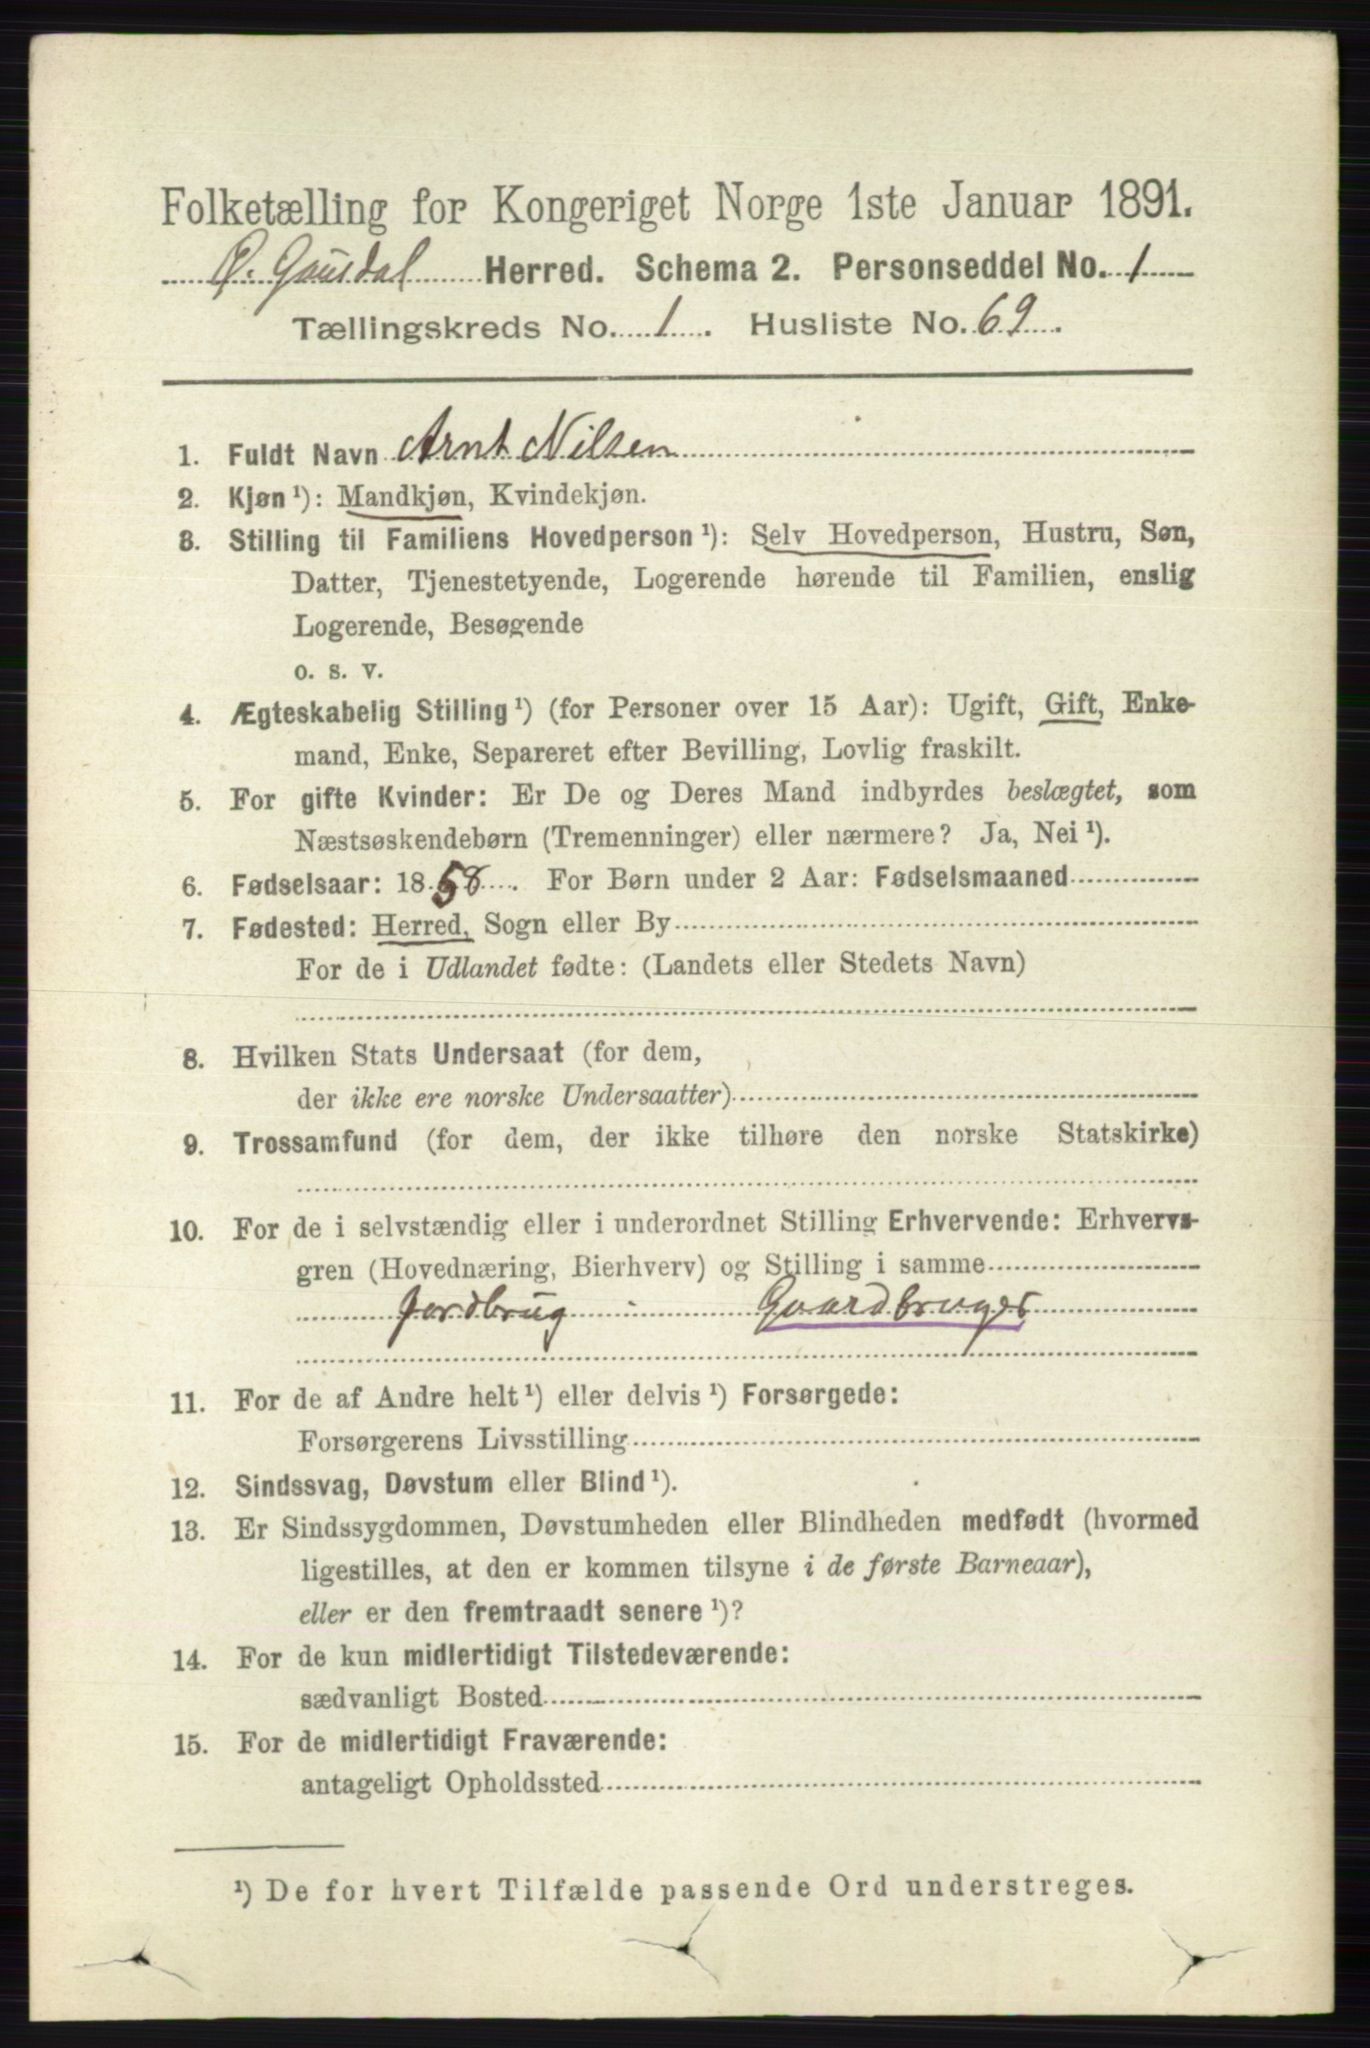 Folketælling for Kongeriget Norge 1ste Januar 1891.
Ø. Gausdal Herred. Schema 2. Personseddel No. 1
Tællingskreds No. 1. Husliste No. 69.
1. Fuldt Navn Arnt Nilsen
2. Kjøn¹): Mandkjøn, Kvindekjøn.
3. Stilling til Familiens Hovedperson¹): Selv Hovedperson, Hustru, Søn,
Datter, Tjenestetyende, Logerende hørende til Familien, enslig
Logerende, Besøgende
o. s. v.
4. Ægteskabelig Stilling¹) (for Personer over 15 Aar): Ugift, Gift, Enke-
mand, Enke, Separeret efter Bevilling, Lovlig fraskilt.
5. For gifte Kvinder: Er De og Deres Mand indbyrdes beslægtet, som
Næstsøskendebørn (Tremenninger) eller nærmere? Ja, Nei¹).
6. Fødselsaar: 1858. For Børn under 2 Aar: Fødselsmaaned
7. Fødested: Herred, Sogn eller By
For de i Udlandet fødte: (Landets eller Stedets Navn)
8. Hvilken Stats Undersaat (for dem,
der ikke ere norske Undersaatter)
9. Trossamfund (for dem, der ikke tilhøre den norske Statskirke)
10. For de i selvstændig eller i underordnet Stilling Erhvervende: Erhvervs-
gren (Hovednæring, Bierhverv) og Stilling i samme
Jordbrug : Gaardbruger
11. For de af Andre helt¹) eller delvis¹) Forsørgede:
Forsørgerens Livsstilling
12. Sindssvag, Døvstum eller Blind¹).
13. Er Sindssygdommen, Døvstumheden eller Blindheden medfødt (hvormed
ligestilles, at den er kommen tilsyne i de første Barneaar),
eller er den fremtraadt senere¹)?
14. For de kun midlertidigt Tilstedeværende:
sædvanligt Bosted
15. For de midlertidigt Fraværende:
antageligt Opholdssted
¹) De for hvert Tilfælde passende Ord understreges.